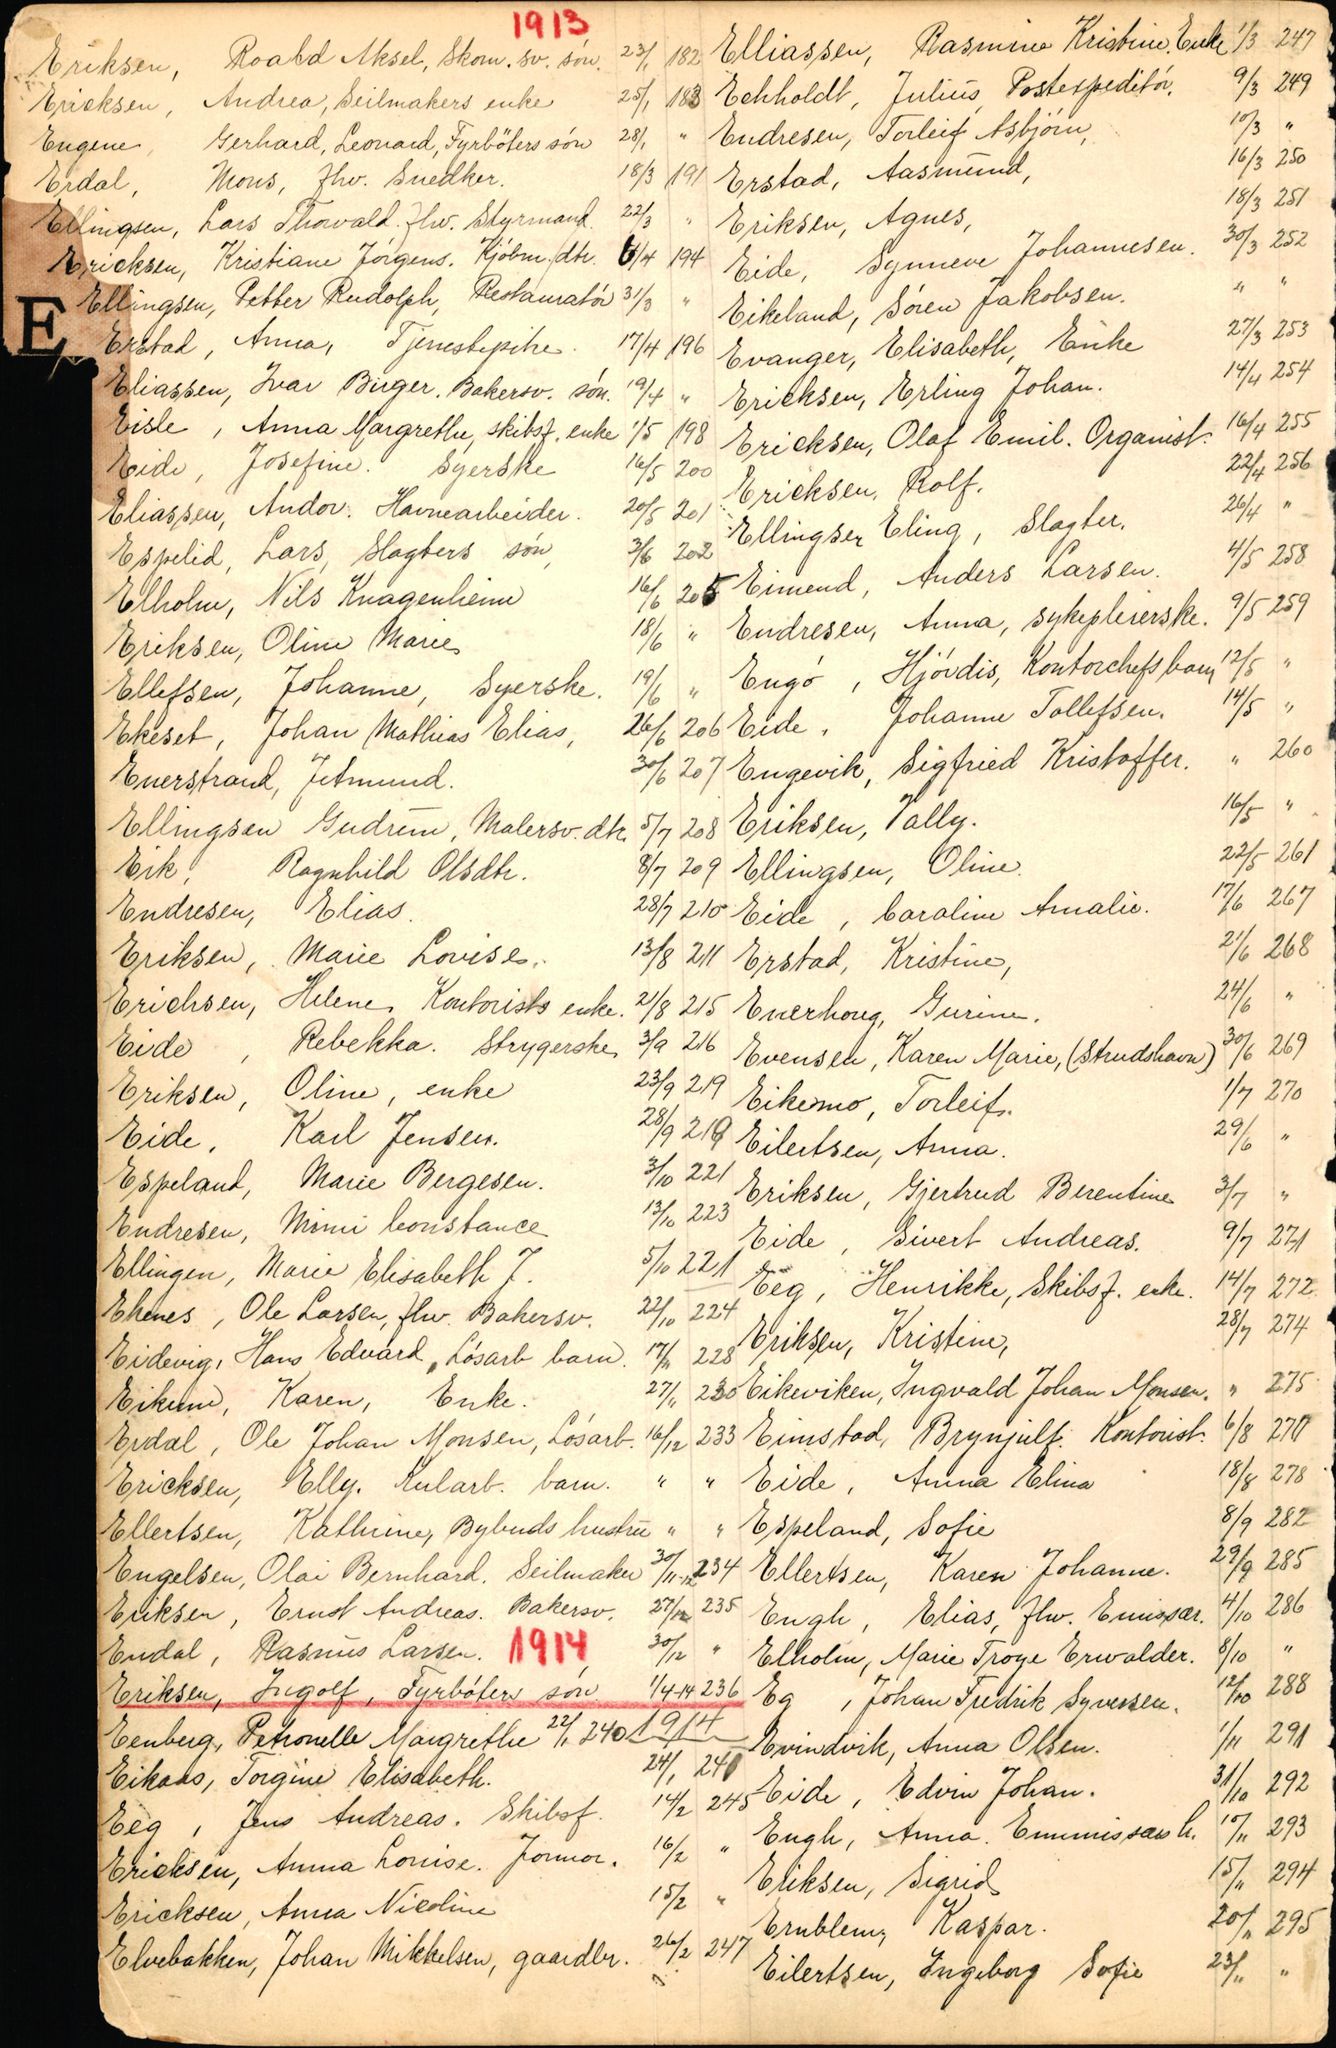 1913
Eriksen, Roald Aksel, Skom. sv. søn. 23/1 182
Ericksen, Andrea, Seilmakers enke 25/1 183
Eugene, Gerhard, Leonard, Fyrbøters søn 28/1 "
Erdal, Mons, fhv. Snedker. 18/3 191
Ellingsen, Lars Thorvald. fhv. Styrmand. 22/3 "
Ericksen, Kristiane Jørgens. Kjøbm. dtr. 6/4 194
Ellingsen, Petter Rudolph, Restauratør 31/3 "
E
Erstad, Anna, Tjenestepike. 17/4 196
Eliassen, Ivar Birger. Bakersv. søn. 19/4 "
Eisle, Anna Margrethe, skibsf. enke 1/5 198
Eide, Josefine. Syerske 16/5 200
Eliassen, Andor. Havnearbeider. 20/5 201
Espelid, Lars, Slagters søn, 3/6 202
Elholm, Nils Knagenhjelm 16/6 205
Eriksen, Oline Marie 18/6 "
Ellefsen, Johanne, Syerske. 19/6 "
Ekeset, Johan Mathias Elias, 26/6 206
Enerstrand, Jetmund. 30/6 207
Ellingsen Gudrun, Malersv. dtr. 5/7 208
Eik, Ragnhild Olsdtr. 8/7 209
Endresen, Elias. 28/7 210
Eriksen, Marie Lovise. 13/8 211
Erichsen, Helene, Kontorists enke. 21/8 215
Eide, Rebekka. Strygerske 3/9 216
Eriksen, Oline, enke 23/9 219
Eide, Karl Jensen. 28/9 219
Espeland, Marie Bergesen. 3/10 221
Endresen, Mimi Constance 13/10 223
Ellingen, Marie Elisabeth J. 5/10 221
Ekenes, Ole Larsen, fhv. Bakersv. 22/10 224
Eidevig, Hans Edvard, Løsarb barn. 17/11 228
Eikum, Karen, Enke. 27/11 230
Erdal, Ole Johan Monsen, Løsarb. 16/12 233
Ericksen, Elly. Kularb. barn. " "
Ellertsen, Kathrine, Bybuds hustru " "
Engelsen, Olai Bernhard. Seilmaker 30/11-12 234
Eriksen, Ernst Andreas. Bakersv. 27/12 235
Endal, Rasmus Larsen. 30/12 "
1914
Eriksen, Ingolf, Fyrbøters søn 1/4-14 236
Eenberg, Petronelle Margrethe 22/1 240 1914
Eikaas, Torgine Elisabeth. 24/1 240
Eeg, Jens Andreas. Skibsf. 14/2 245
Ericksen, Anna Louise. Jormor. 16/2 "
Ericksen, Anna Nicoline 15/2 "
Elvebakken, Johan Mikkelsen, gaardbr. 26/2 247
Elliassen, Rasmine Kristine. Enke 1/3 247
Echholdt, Julius, Postexpeditør. 9/3 249
Endresen, Torleif Asbjørn, 10/3 "
Erstad, Aasmund, 16/3 250
Eriksen, Agnes, 18/3 251
Eide, Synneve Johannesen. 30/3 252
Eikeland, Søren Jakobsen. " "
Evanger, Elisabeth, Enke 27/3 253
Ericksen, Erling Johan. 14/4 254
Ericksen, Olaf Emil. Organist. 16/4 255
Ericksen, Rolf. 22/4 256
Ellingsen Eling, Slagter. 26/4 "
Eimend, Anders Larsen. 4/5 258
Endresen, Anna, sykepleierske. 9/5 259
Engø, Hjørdis, Kontorchefs barn 12/5 "
Eide, Johanne Tollefsen. 14/5 "
Engevik, Sigfried Kristoffer. " 260
Eriksen, Vally. 16/5 "
Ellingsen, Oline. 22/5 261
Eide, Caroline Amalie. 17/6 267
Erstad, Kristine, 21/6 268
Enerhoug, Gurine. 24/6 "
Evensen, Karen Marie, (Strudshavn) 30/6 269
Eikemo, Torleif. 1/7 270
Eilertsen, Anna. 29/6 "
Eriksen, Gjertrud Berentine 3/7 "
Eide, Sivert Andreas. 9/7 271
Eeg, Henrikke, Skibsf. enke. 14/7 272
Eriksen, Kristine, 28/7 274
Eikeviken, Ingvald Johan Monsen. " 275
Eimstad, Brynjulf. Kontorist. 6/8 277
Eide, Anna Elina 18/8 278
Espeland, Sofie 8/9 282
Ellertsen, Karen Johanne. 29/9 285
Engh, Elias, fhv. Emissær. 4/10 286
Elholm, Marie Troye Erwalder. 8/10 "
Eg, Johan Fredrik Syversen. 12/10 288
Evindvik, Anna Olsen. 1/11 291
Eide, Edvin Johan. 31/10 292
Engh, Anna. Emmissærs h. 10/11 293
Eriksen, Sigrid 15/11 294
Emblem, Kaspar. 20/11 295
Eilertsen, Ingeborg Sofie 23/11 "